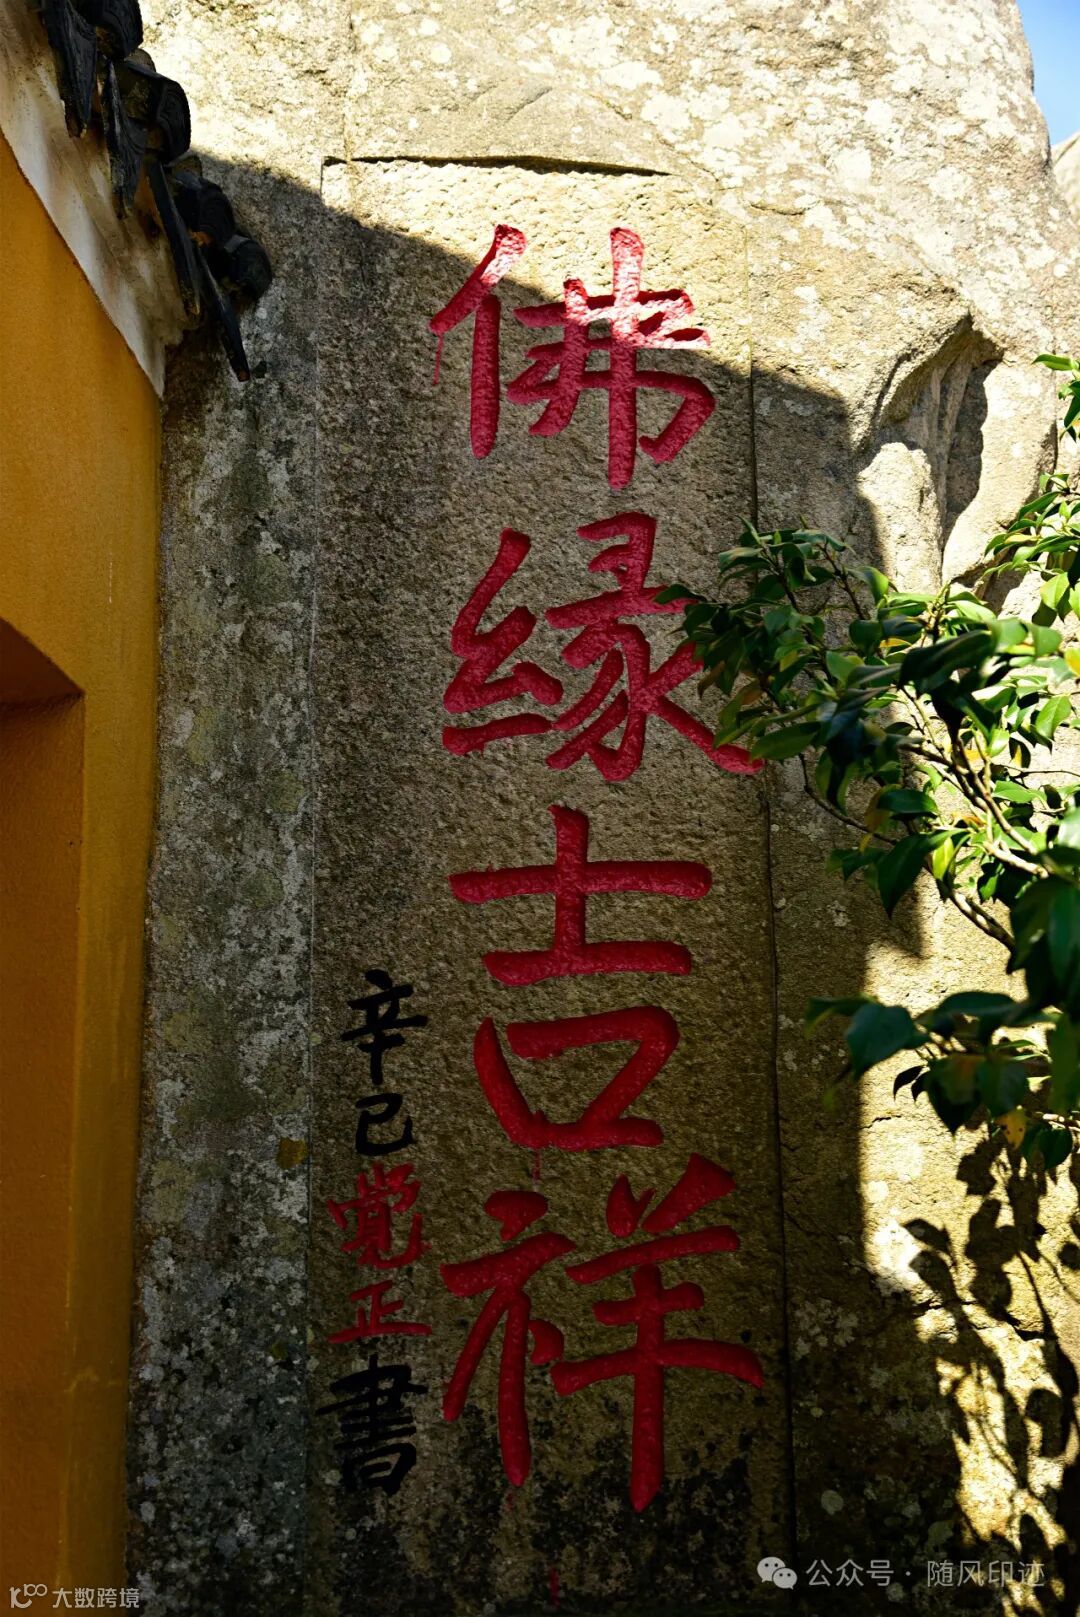 佛缘吉祥
辛巳覺正書
公众号·随风印迹
大数跨境